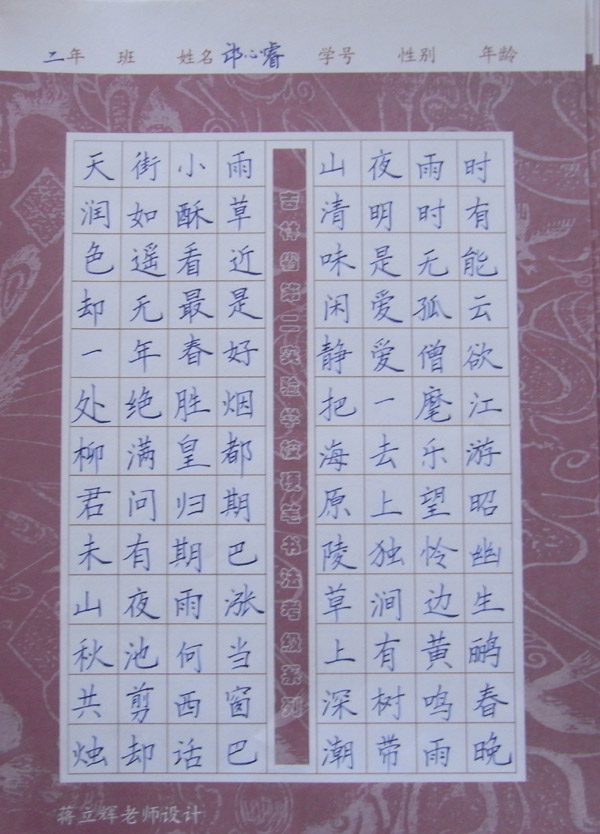 二年 班 姓名 心睿 学号 性别 年龄
天街小雨
润如酥草
色遥看近
却无最是
一年春好
处绝胜烟
柳满皇都
君问归期
未有期巴
山夜雨涨
秋池何当
共剪西窗
烛却话巴
吉林省第二实验学校硬笔书法考级系列
山夜雨时
清明时有
味是无能
闲爱孤云
静爱僧欲
把一麾江
海去乐游
原上望昭
陵独怜幽
草涧边生
上有黄鹂
深树鸣春
潮带雨晚
蒋立辉老师设计